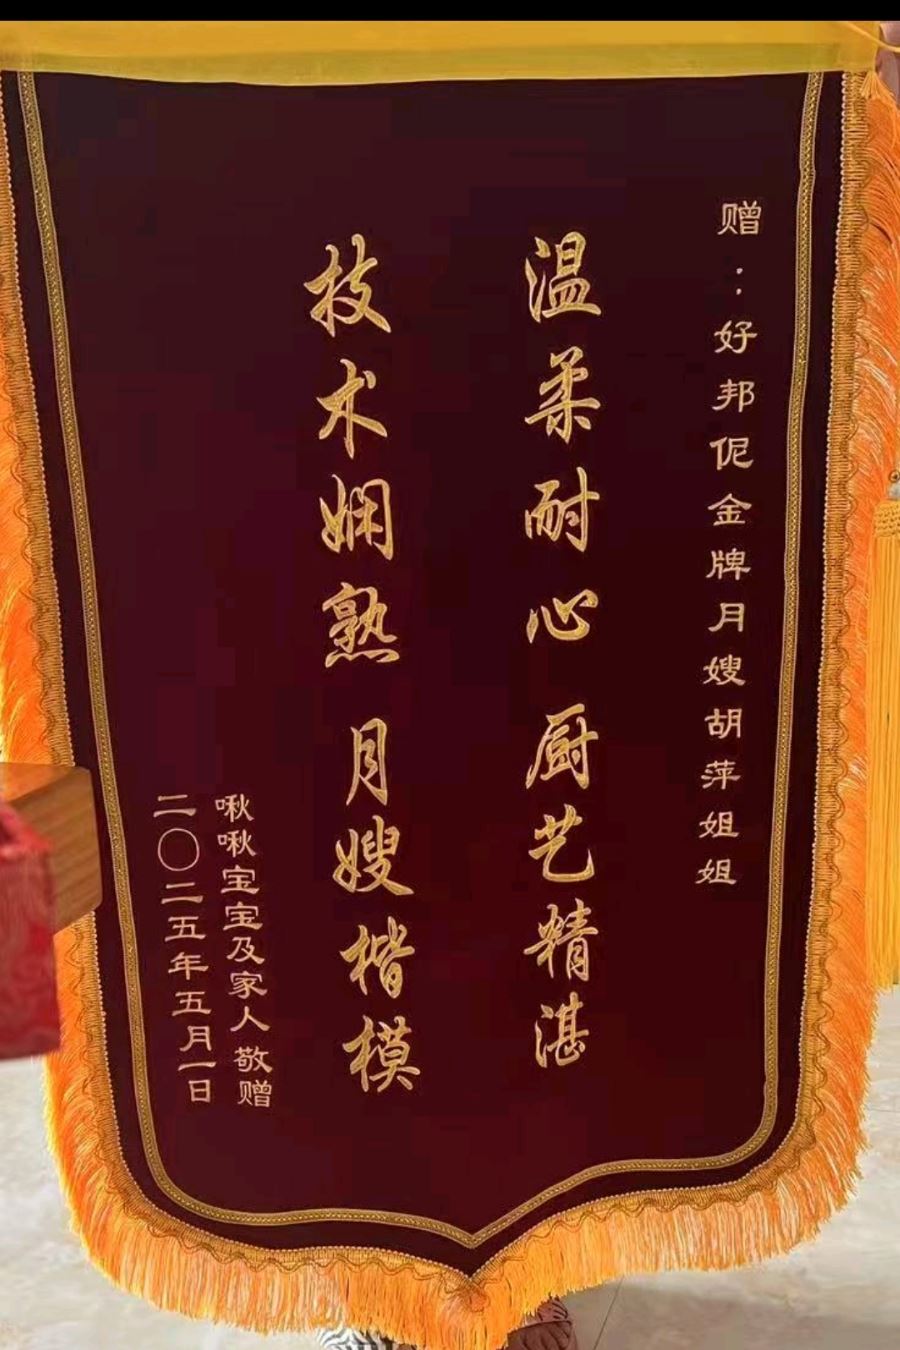 赠：好邦伲金牌月嫂胡萍姐姐
温柔耐心 厨艺精湛
技术娴熟 月嫂楷模
啾啾宝宝及家人 敬赠
二〇二五年五月一日